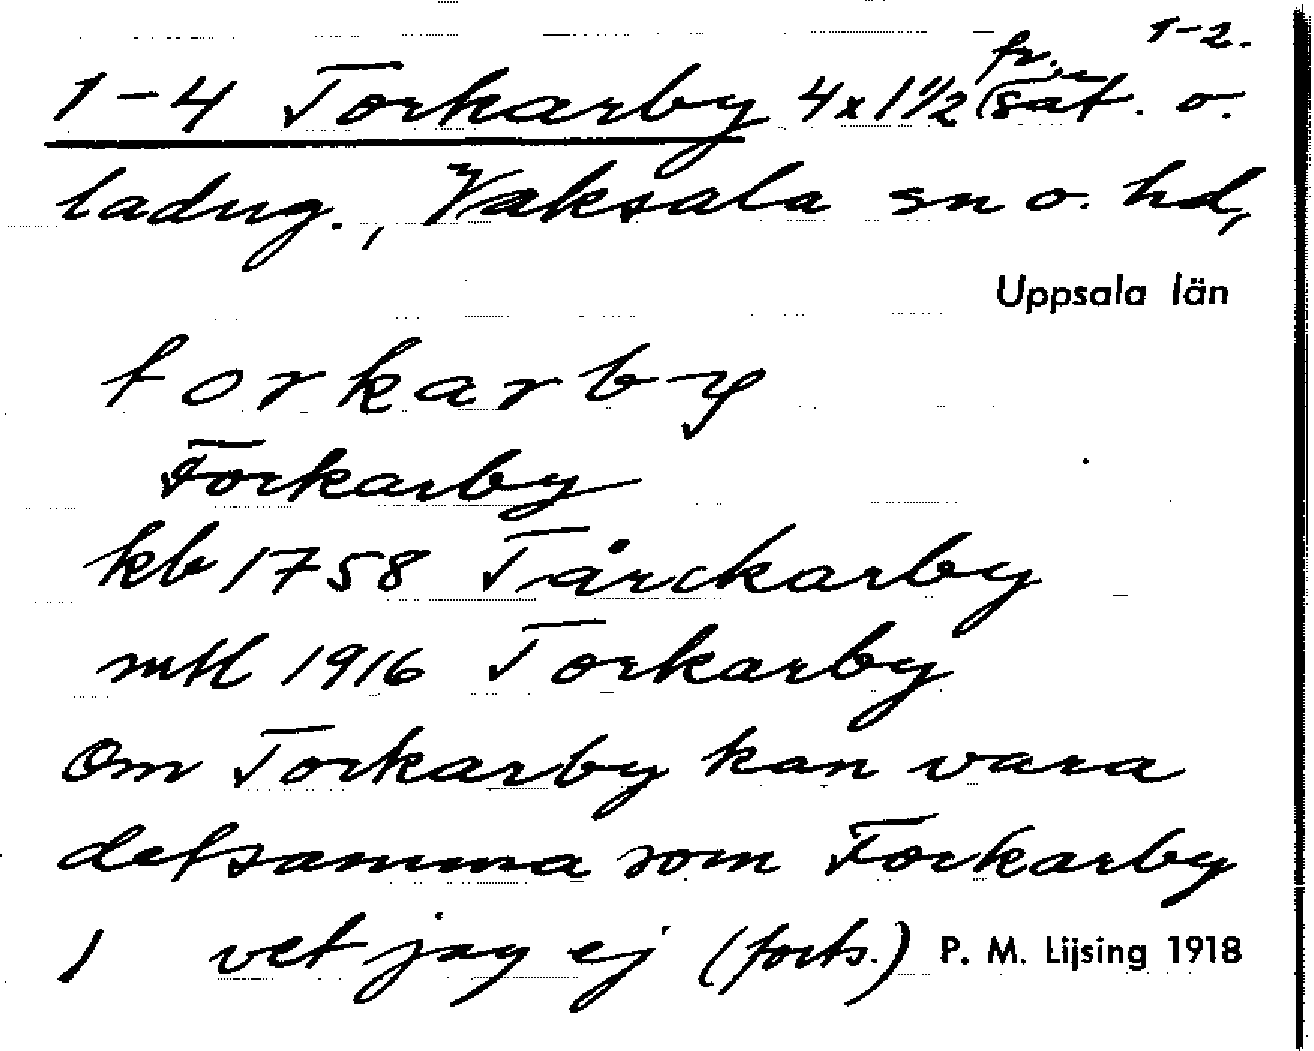 1-2.
1-4 Torkarby 4x1 1/2 fr. sät. o.
ladug., Vaksala sn o. hd,
Uppsala län
torkarby
Forkarby
kb 1758 Tårckarby
mtl 1916 Torkarby
Om Torkarby kan vara
detsamma som Forkarby
1 vet jag ej (forts.) P. M. Lijsing 1918